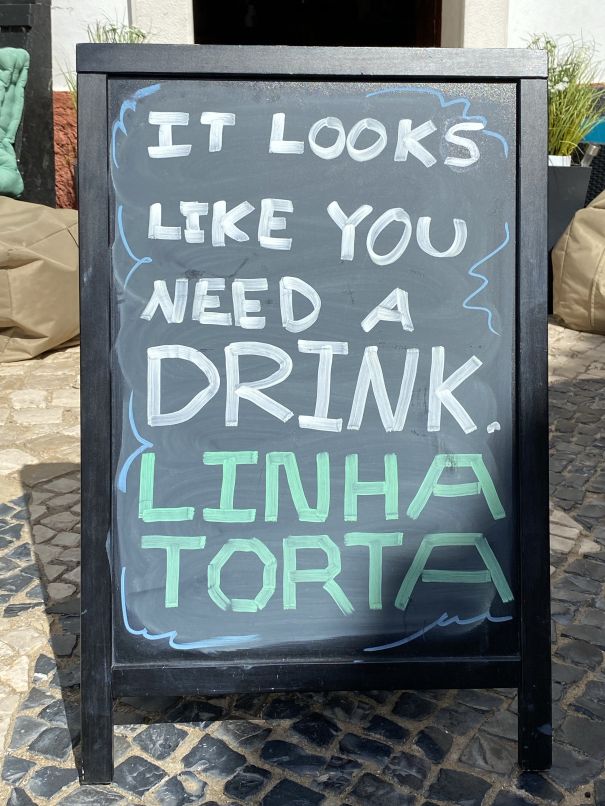 IT LOOKS
LIKE YOU
NEED A
DRINK.
LINHA
TORTA